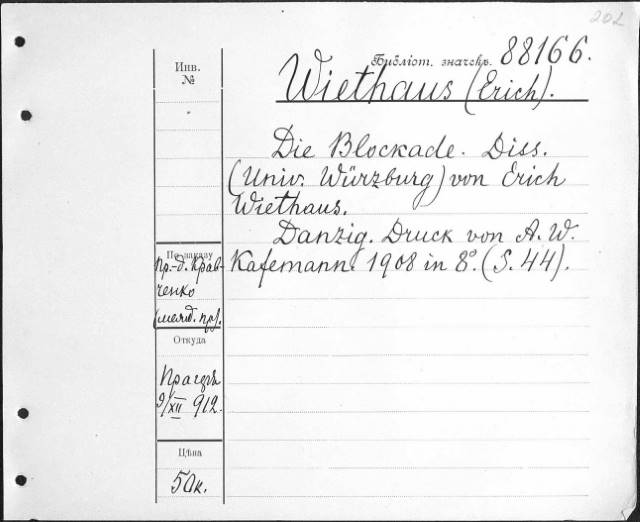 202
Библіот. значекъ. 88166.
Wiethaus (Erich).
Инв.
№
Die Blockade. Diss.
(Univ. Würzburg) von Erich
Wiethaus.
Danzig. Druck von A. W.
Kafemann. 1908 in 8°. (S. 44).
По заказу
Пр.-д. Крав-
ченко
(межд. пр).
Откуда
9/XII 912.
Цѣна
50к.